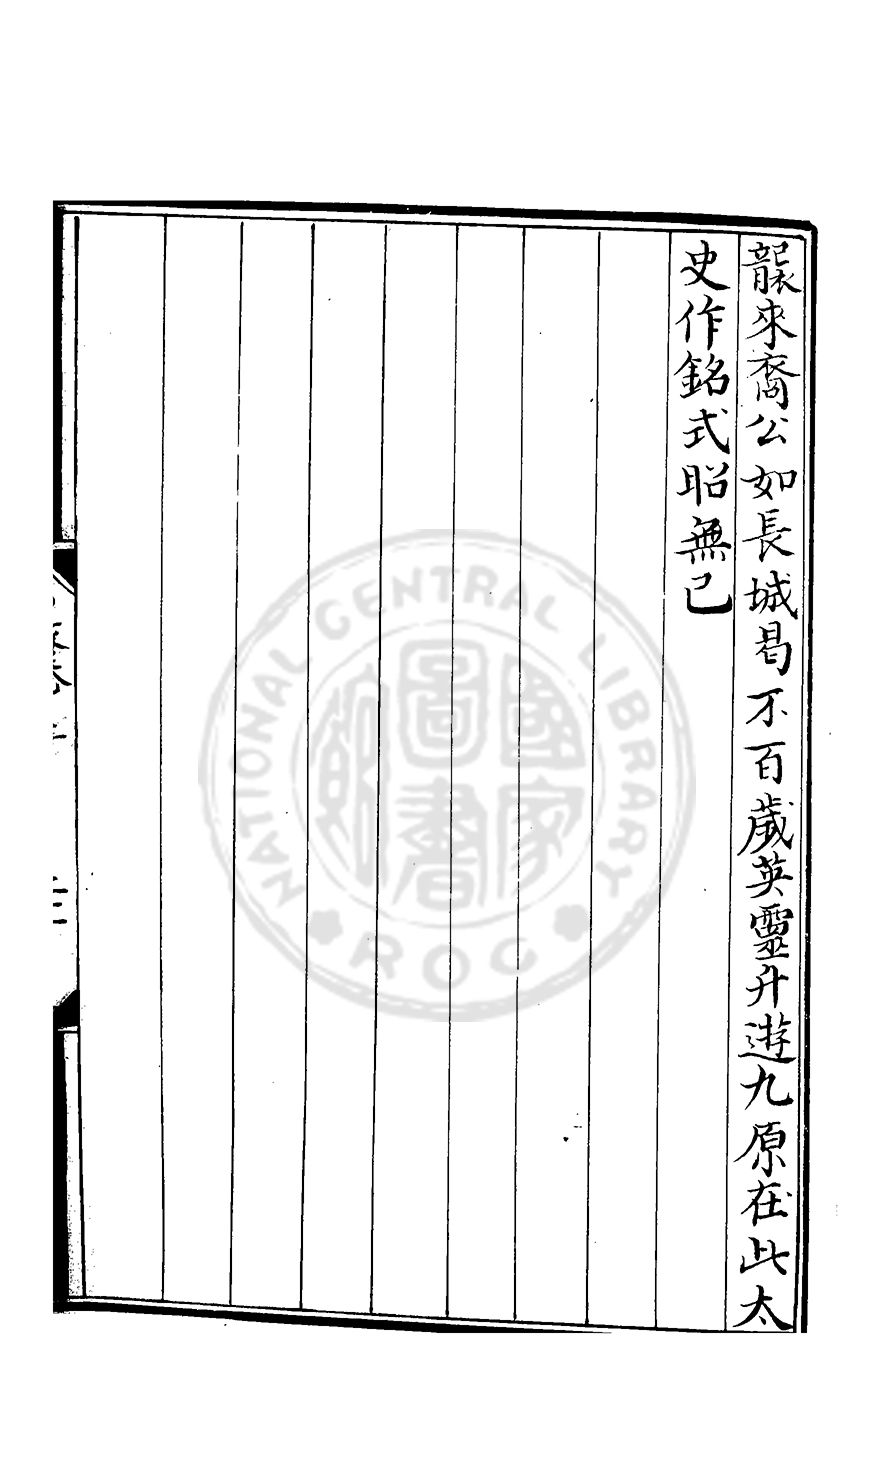 襲來裔公如長城曷不百歲英靈升遊九原在此太
史作銘式昭無已
國家
圖書
NATIONAL CENTRAL LIBRARY
ROC